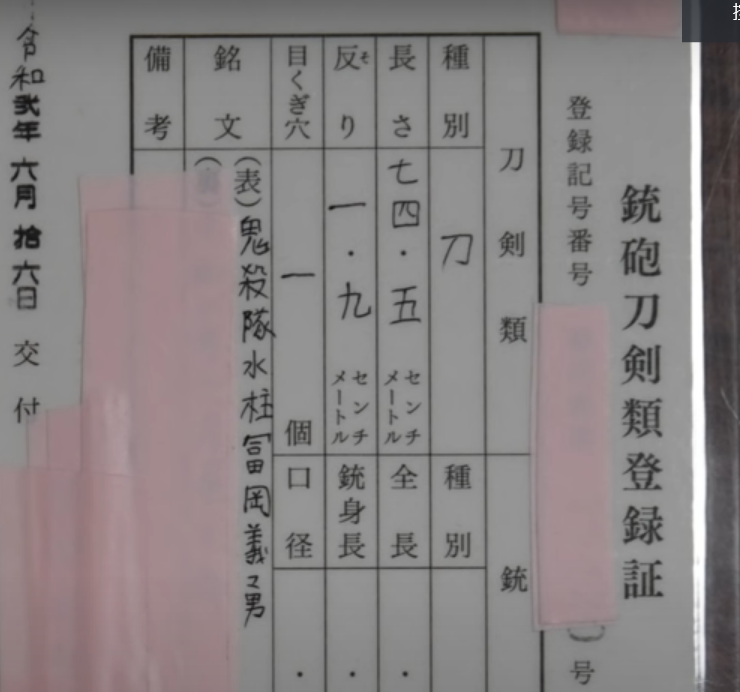 銃砲刀剣類登録証
登録記号番号
号
刀剣類
銃
種別
刀
種別
長さ
七四・五
センチメートル
全長
・
反り
そ
一・九
センチメートル
銃身長
・
目くぎ穴
一
個
口径
・
銘文
(表)鬼殺隊水柱冨岡義又男
備考
令和弐年六月拾六日交付